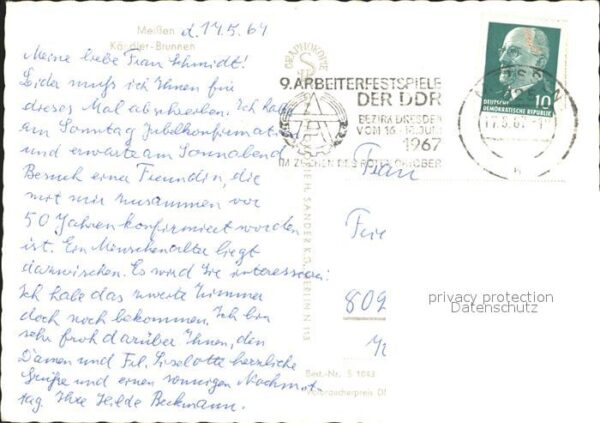 Meißen
d. 14.5.67
Kändler-Brunnen
Meine liebe Frau Schmidt!
Leider muß ich Ihnen für
dieses Mal abschreiben. Ich habe
am Sonntag Jubelkonfirmation
und erwarte am Sonnabend
Besuch einer Freundin, die
mit mir zusammen vor
50 Jahren konfirmiert worden
ist. Ein Menschenalter liegt
dazwischen. Es wird Sie interessieren:
Ich habe das zweite Zimmer
doch noch bekommen. Ich bin
sehr froh darüber Ihnen, den
Damen und Frl. Liselotte herzliche
Grüße und einen sonnigen Nachmit-
tag. Ihre Hilde Beckmann.
GRAPHOKOPIE
H. SANDER KG, BERLIN N 113
9. ARBEITERFESTSPIELE
DER DDR
BEZIRK DRESDEN
VOM 16.-18. JUNI
1967
IM ZEICHEN DES ROTEN OKTOBER
DEUTSCHE
DEMOKRATISCHE REPUBLIK
10
Frau
809
privacy protection
Datenschutz
Best.-Nr. S 1043
Verbraucherpreis